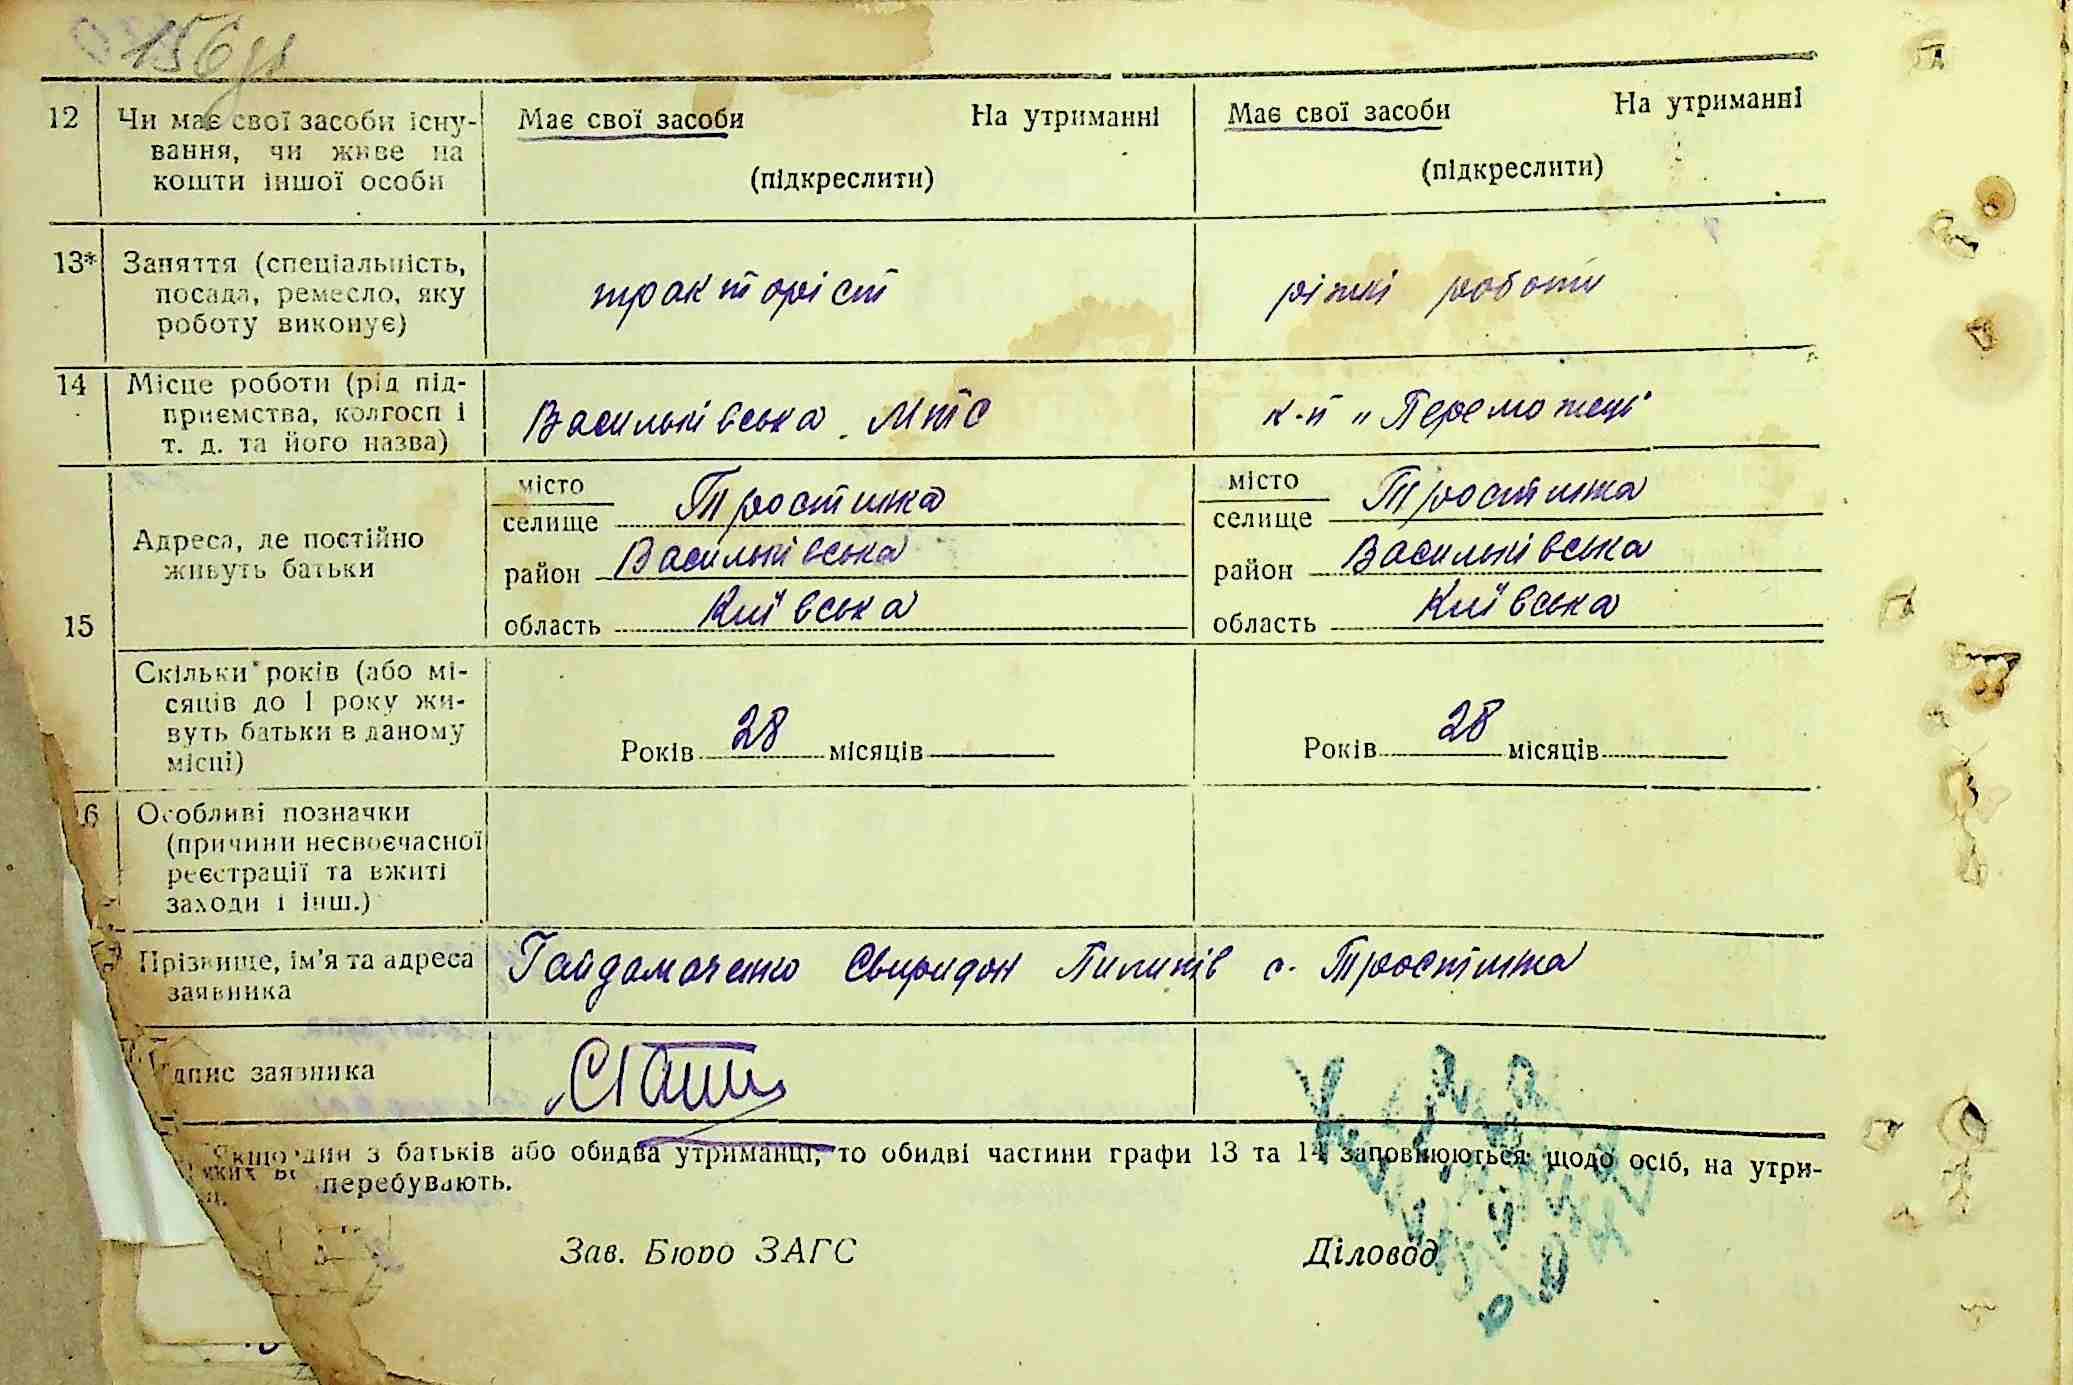 156
12 Чи має свої засоби існу- Має свої засоби На утриманні Має свої засоби На утриманні
вання, чи живе на
кошти іншої особи (підкреслити) (підкреслити)
13* Заняття (спеціальність,
посада, ремесло, яку тракторіст ріжні роботи
роботу виконує)
14 Місце роботи (рід під-
приємства, колгосп і Васильківська МТС к-п „Переможець"
т. д. та його назва)
місто Тростинка місто Тростинка
селище селище
15 Адреса, де постійно
живуть батьки район Васильківська район Васильківська
область Київська область Київська
Скільки років (або мі-
сяців до 1 року жи-
вуть батьки в даному Років 28 місяців Років 28 місяців
місці)
16 Особливі позначки
(причини несвоєчасної
реєстрації та вжиті
заходи і інш.)
Прізвище, ім'я та адреса Гайдамаченко Свиридон Пилипів с. Тростинка
заявника
підпис заявника
Якщо один з батьків або обидва утриманці, то обидві частини графи 13 та 14 заповнюються щодо осіб, на утри-
яких перебувають.
Зав. Бюро ЗАГС Діловод